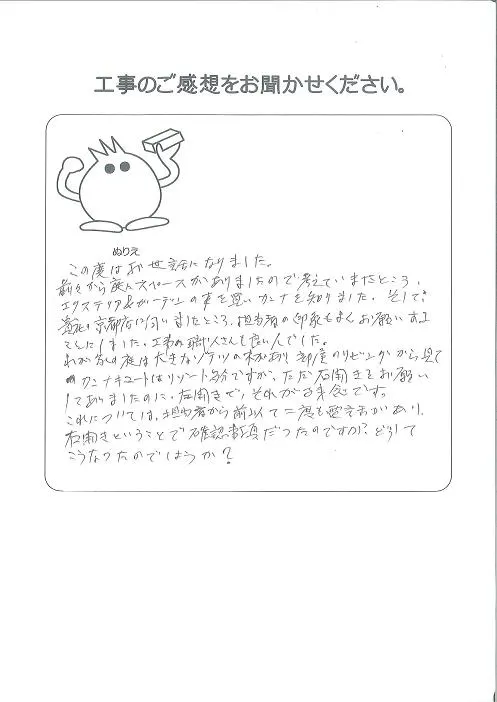 工事のご感想をお聞かせください。
ぬりえ
この度はお世話になりました。
前々から庭にスペースがありましたので考えていましたところ、
エクステリア&ガーデンの本を買いカンナを知りました。そして
京都店に伺いましたところ、担当者の印象もよくお願いする
ことにしました。工事の職人さんも良い人でした。
わが家の庭は大きなソテツの木があり 部屋のリビングから見て
カンナキュートはリゾート気分ですが、ただ右開きをお願い
してありましたのに、左開きで、それが残念です。
これについては、担当者から前以て二度も電話があり、
右開きということで確認済だったのですが? どうして
こうなったのでしょうか?